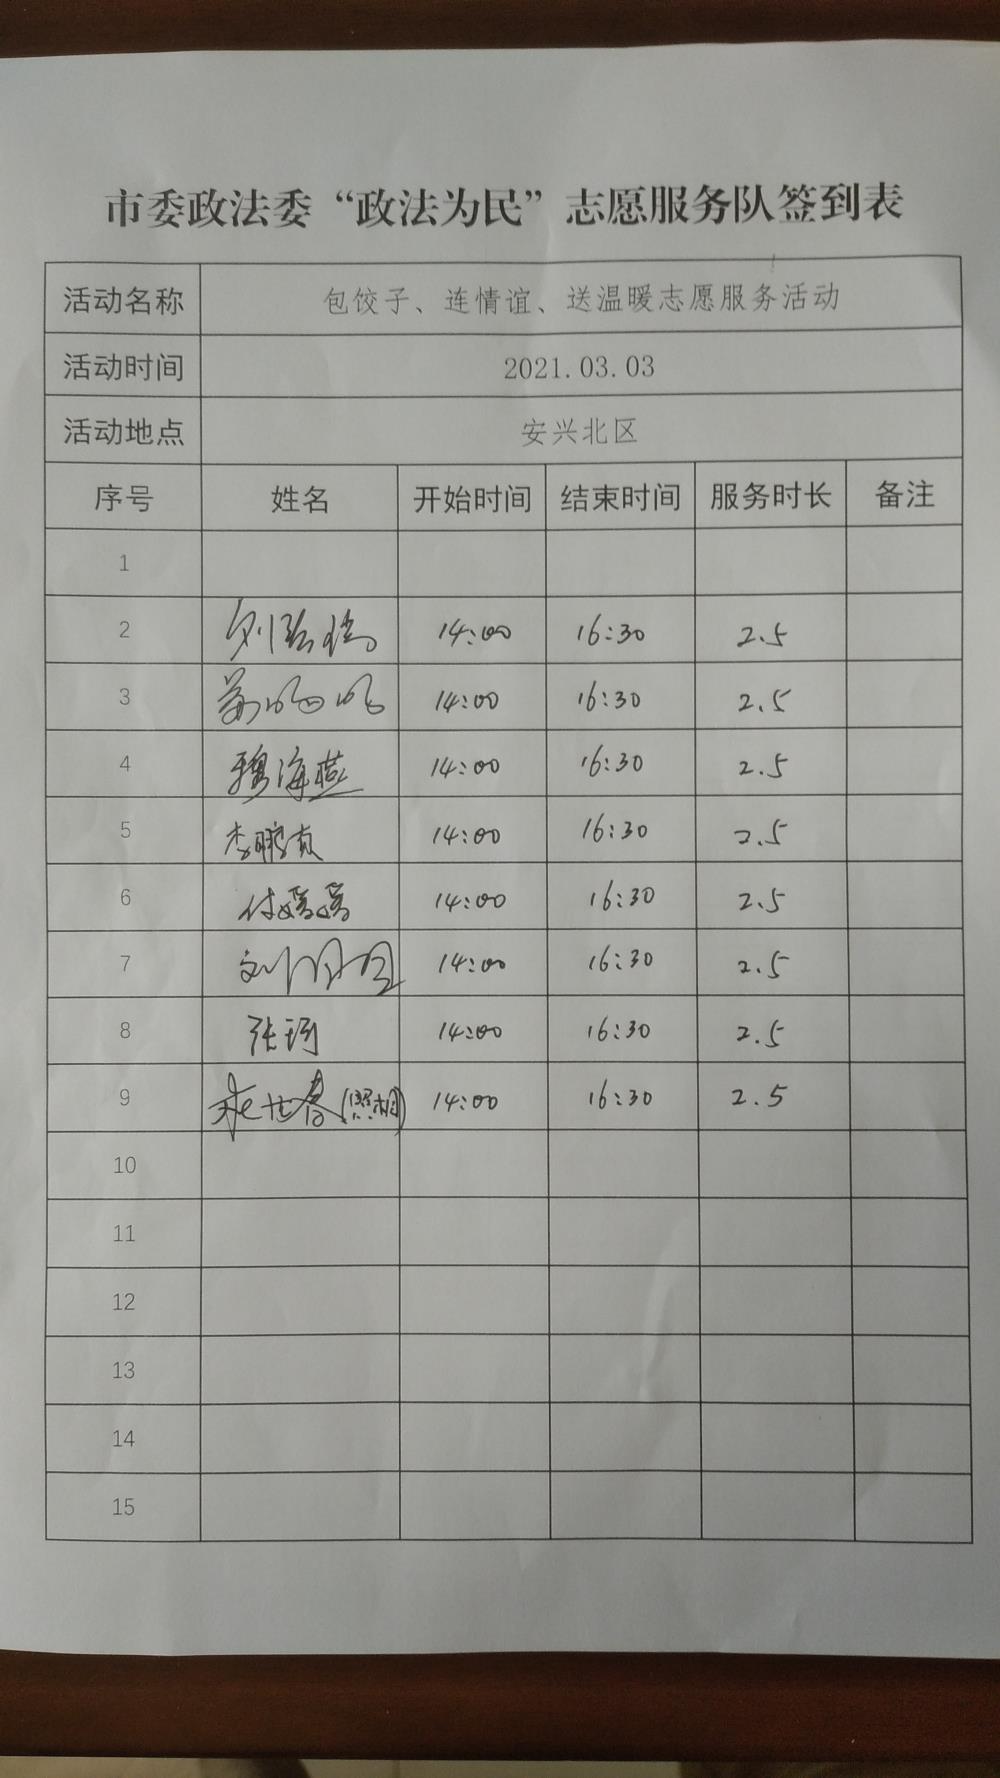 市委政法委“政法为民”志愿服务队签到表
活动名称 包饺子、连情谊、送温暖志愿服务活动
活动时间 2021.03.03
活动地点 安兴北区
序号 姓名 开始时间 结束时间 服务时长 备注
1
2 14:00 16:30 2.5
3 14:00 16:30 2.5
4 穆海燕 14:00 16:30 2.5
5 李鹏贞 14:00 16:30 2.5
6 付嫣嫣 14:00 16:30 2.5
7 刘 14:00 16:30 2.5
8 张珂 14:00 16:30 2.5
9 世春(照相) 14:00 16:30 2.5
10
11
12
13
14
15